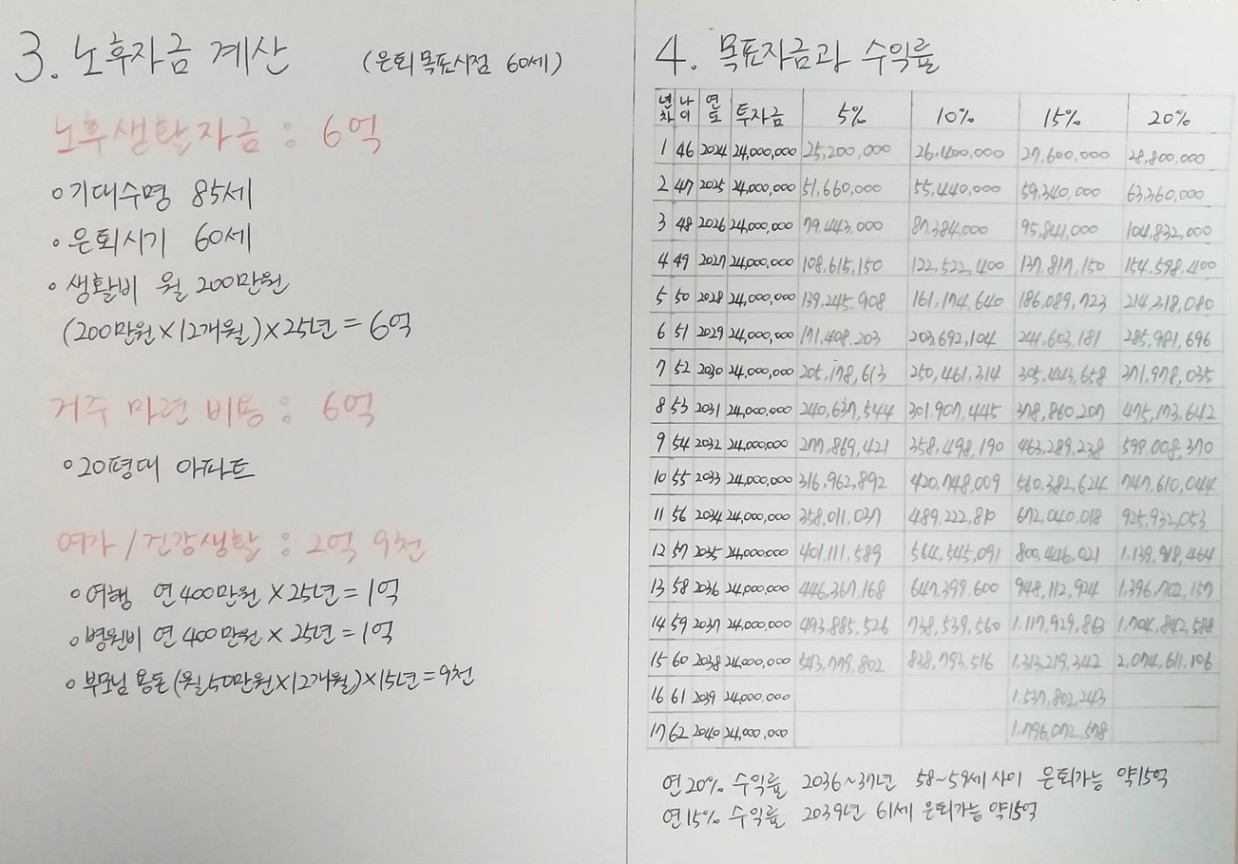 3. 노후자금 계산 (은퇴 목표시점 60세)
노후생활자금 : 6억
○ 기대수명 85세
○ 은퇴시기 60세
○ 생활비 월 200만원
(200만원×12개월)×25년 = 6억
거주 마련 비용 : 6억
○ 20평대 아파트
여가/건강생활 : 2억 9천
○ 여행 연 400만원 × 25년 = 1억
○ 병원비 연 400만원 × 25년 = 1억
○ 부모님 용돈 (월50만원×12개월)×15년 = 9천
4. 목표자금과 수익률
년차 나이 연도 투자금 5% 10% 15% 20%
1 46 2024 24,000,000 25,200,000 26,400,000 27,600,000 28,800,000
2 47 2025 24,000,000 51,660,000 55,440,000 59,340,000 63,360,000
3 48 2026 24,000,000 79,443,000 87,384,000 95,841,000 104,832,000
4 49 2027 24,000,000 108,615,150 122,522,400 137,817,150 154,598,400
5 50 2028 24,000,000 139,245,908 161,174,640 186,089,723 214,318,080
6 51 2029 24,000,000 171,408,203 203,692,104 241,603,181 285,981,696
7 52 2030 24,000,000 205,178,613 250,461,314 305,443,658 371,978,035
8 53 2031 24,000,000 240,637,544 301,907,445 378,860,207 475,173,642
9 54 2032 24,000,000 277,869,421 358,498,190 463,289,238 599,008,370
10 55 2033 24,000,000 316,962,892 420,748,009 560,382,624 747,610,044
11 56 2034 24,000,000 358,011,037 489,222,810 672,040,018 925,932,053
12 57 2035 24,000,000 401,111,589 564,545,091 800,446,021 1,139,918,464
13 58 2036 24,000,000 446,367,168 647,399,600 948,112,924 1,396,702,157
14 59 2037 24,000,000 493,885,526 738,539,560 1,117,929,863 1,704,842,588
15 60 2038 24,000,000 543,779,802 838,793,516 1,313,219,342 2,074,611,106
16 61 2039 24,000,000 1,537,802,243
17 62 2040 24,000,000 1,796,072,578
연 20% 수익률 2036~37년 58~59세 사이 은퇴가능 약15억
연 15% 수익률 2039년 61세 은퇴가능 약15억